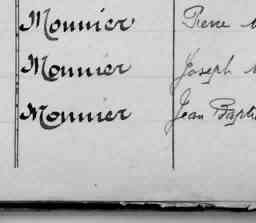 Monnier Pierre
Monnier Joseph
Monnier Jean Bapti